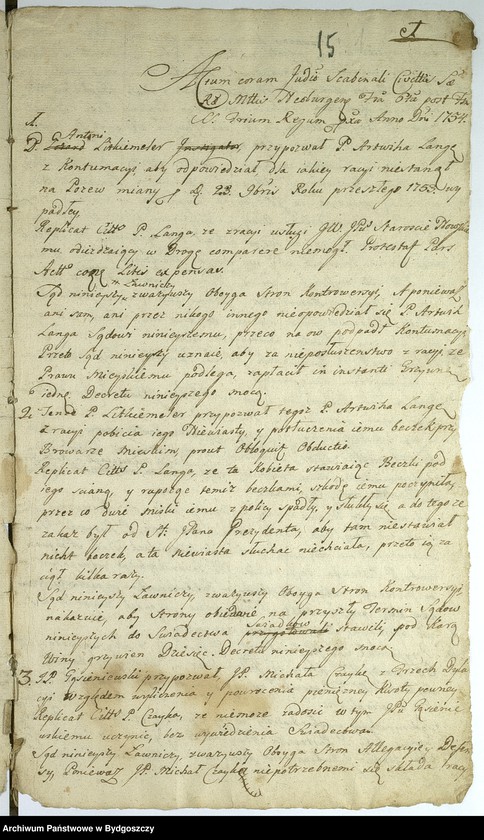 15
Actum coram Judio Scabinali Civittis Sæ
Ræ Mttis Neoburgen: Fria 6ta post Ftum
SS. Trium Regum Dnia Anno Dni 1754.
1.
Antoni
P. Litkiemeler Instigator, przypozwał P. Artwika Langę
z Kontumacyi, aby odpowiedział, dla iakiey racyi niestanął
na Pozew miany 9bris Roku przeszłego 1753. wy
padły.
Replicat Cittus P. Langa, ze zracyi usługi JW. JPu Staroscie
mu odieżdzaiący w Drogę comparere niemogł. Protestat Pars
Actta Litis expensas.
Ławniczy
Sąd ninieyszy zwazywszy Oboyga Stron Kontrowersyi, A poniewaz
ani sam, ani przez nikogo innego nieopowiedział się P. Artwik
Langa Sądowi ninieyszemu, przeco na ow podpadł Kontumacyi
Przeto Sąd ninieyszy uznaie, aby za nieposłuszenstwo z racyi, ze
Prawu Mieyskiemu podlega, zapłacił in instanti Grzywnę
iednę Decretu ninieyszego mocą.
2. Tenze P. Litkiemeler przypozwał tegoz P. Artwika Langę
zracyi pobicia iego Niewiasty, y potłuczenia iemu beczek przy
Browarze Mieskim, prout Obloquit Obductio.
Replicat Cittus P. Langa, ze ta Kobieta stawiaiąc Beczki pod
iego scianą, y ruszaąc temiz beczkami, szkodę iemu poczyniła,
przez co dwie miski iemu z policy spadły, y stłukły się, a do tego ze
zakaz był od Sł: JPana Prezydenta, aby tam niestawiał
nicht beczek, a ta niewiasta słuchac niechciała, przeto ią za
ciął kilka razy.
Sąd ninieyszy Ławniczy, zwazywszy Oboyga Stron Kontrowersyi,
nakazuie, aby Strony obiedwie na przyszły Termin Sądow
ninieyszych do Swiadectwa Swiadkow stawili, pod karą
Winy grzywien Dziesięc. Decretu ninieyszego mocą.
3. JP. Gąsieniewski przypozwał, JP. Michała Czaykę z Trzech Dyla
cyi Względem wyliczenia y powrocenia pieniężney Kwoty pewney
Replicat Cittus P. Czayka, ze niemoze zadosyc w tym JPu Gąsienie
wskiemu uczynic, bez wywiedzenia Swiadectwa.
Sąd ninieyszy Ławniczy, zwazywszy Oboyga Stron Allegacyie, y Defen
sy, Poniewaz JP. Michał Czayka niepotrzebnemi się składa racy
Archiwum Państwowe w Bydgoszczy